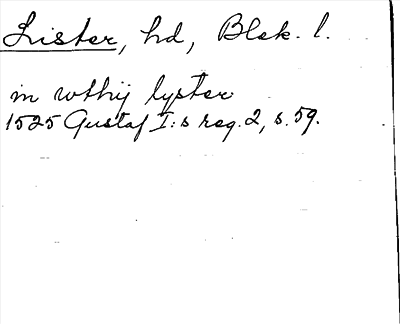 Lister, hd, Blek. l.
in wthij lyster
1525 Gustaf I:s reg. 2, s. 59.